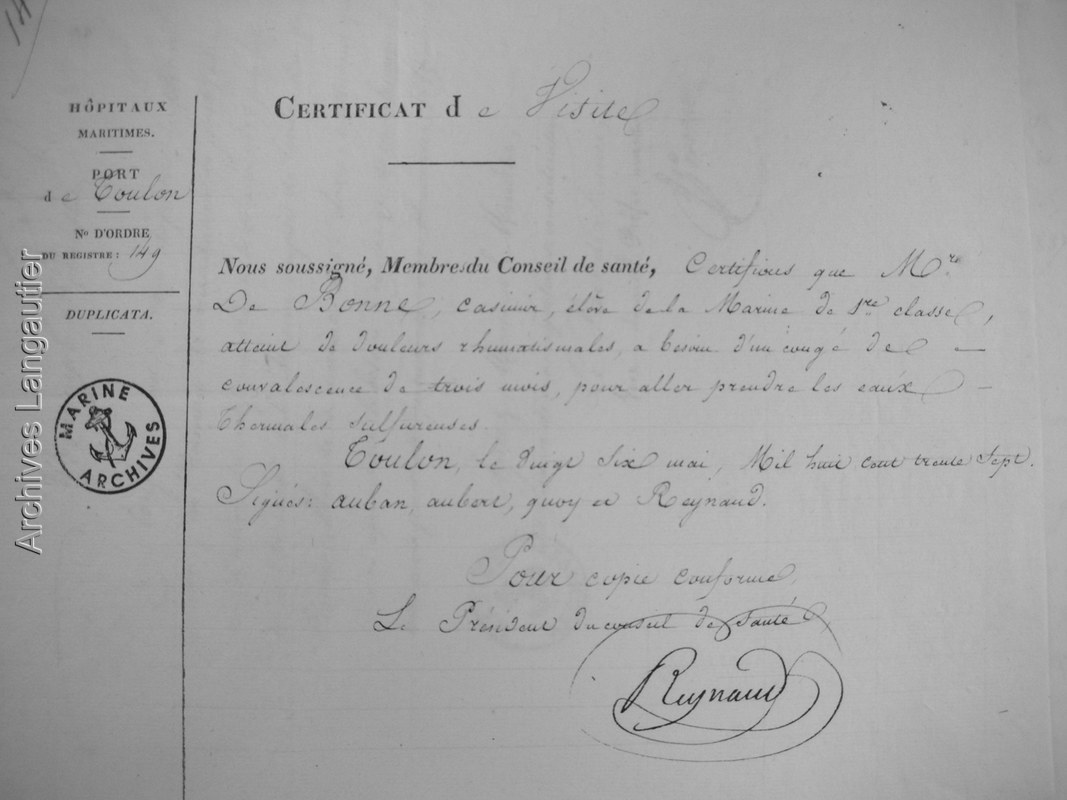 14
HÔPITAUX
MARITIMES.
PORT
de Toulon
No D'ORDRE
DU REGISTRE : 149
DUPLICATA.
MARINE
ARCHIVES
Archives Langautier
CERTIFICAT de Visite
Nous soussigné, Membres du Conseil de santé, Certifions que Mre
De Bonne, Casimir, élève de la Marine de 1re classe,
atteint de douleurs rhumatismales, a besoin d'un congé de —
convalescence de trois mois, pour aller prendre les eaux —
Thermales sulfureuses.
Toulon, le vingt six mai, Mil huit cent trente sept.
Signés: auban, aubert, quoy et Reynaud.
Pour copie conforme,
Le Président du conseil de santé,
Reynaud